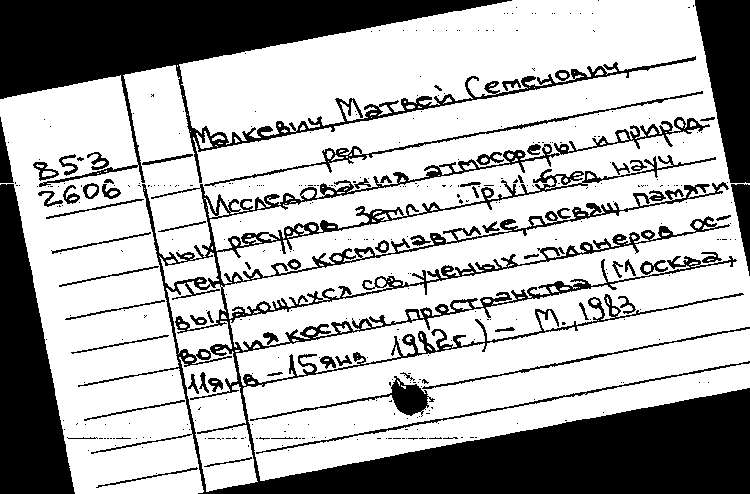 85-3
2606
Малкевич, Матвей Семенович,
ред.
Исследования атмосферы и природ-
ных ресурсов Земли : Тр. VI объед. науч.
чтений по космонавтике, посвящ. памяти
выдающихся сов. ученых-пионеров ос-
воения космич. пространства (Москва,
11 янв. - 15 янв 1982 г.) - М., 1983